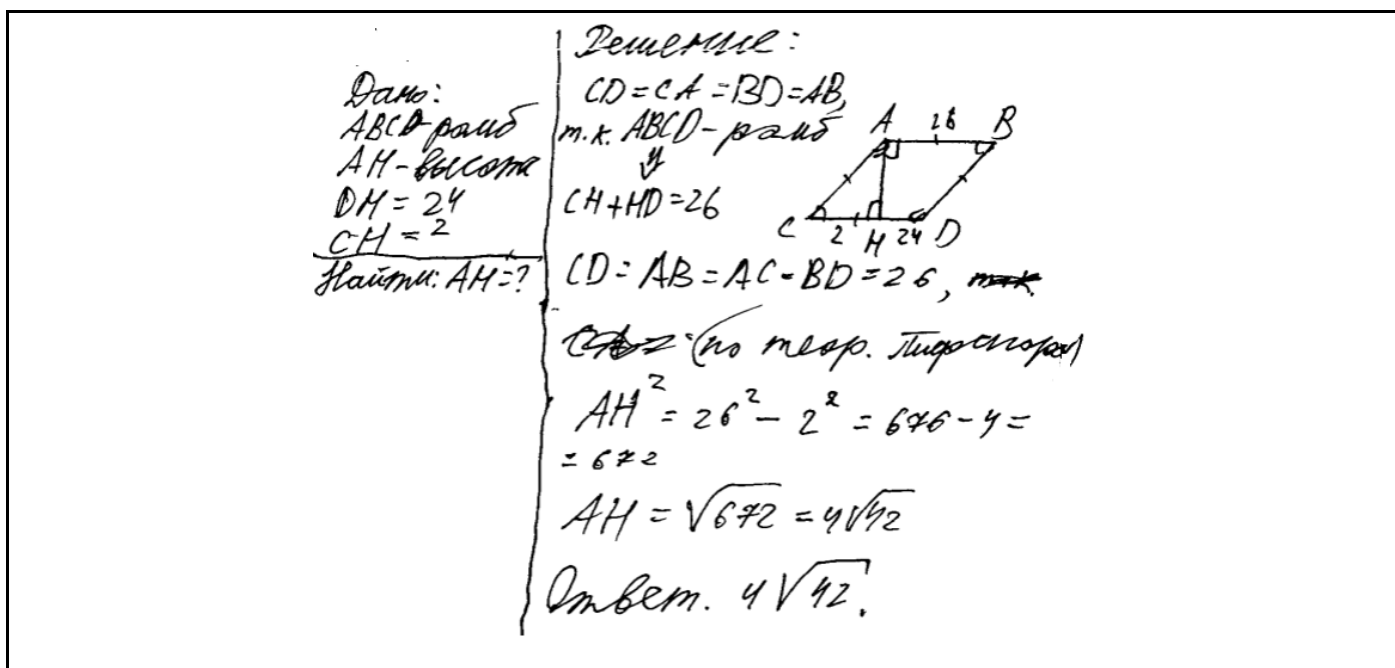 Дано:
ABCD-ромб
AH-высота
DH = 24
CH = 2
Найти: AH=?
Решение:
CD = CA = BD = AB,
т.к. ABCD-ромб
⇓
CH+HD=26
A 26 B
C 2 H 24 D
CD = AB = AC = BD = 26,
(по теор. Пифагора)
AH² = 26² - 2² = 676 - 4 =
= 672
AH = √672 = 4√42
Ответ. 4√42.